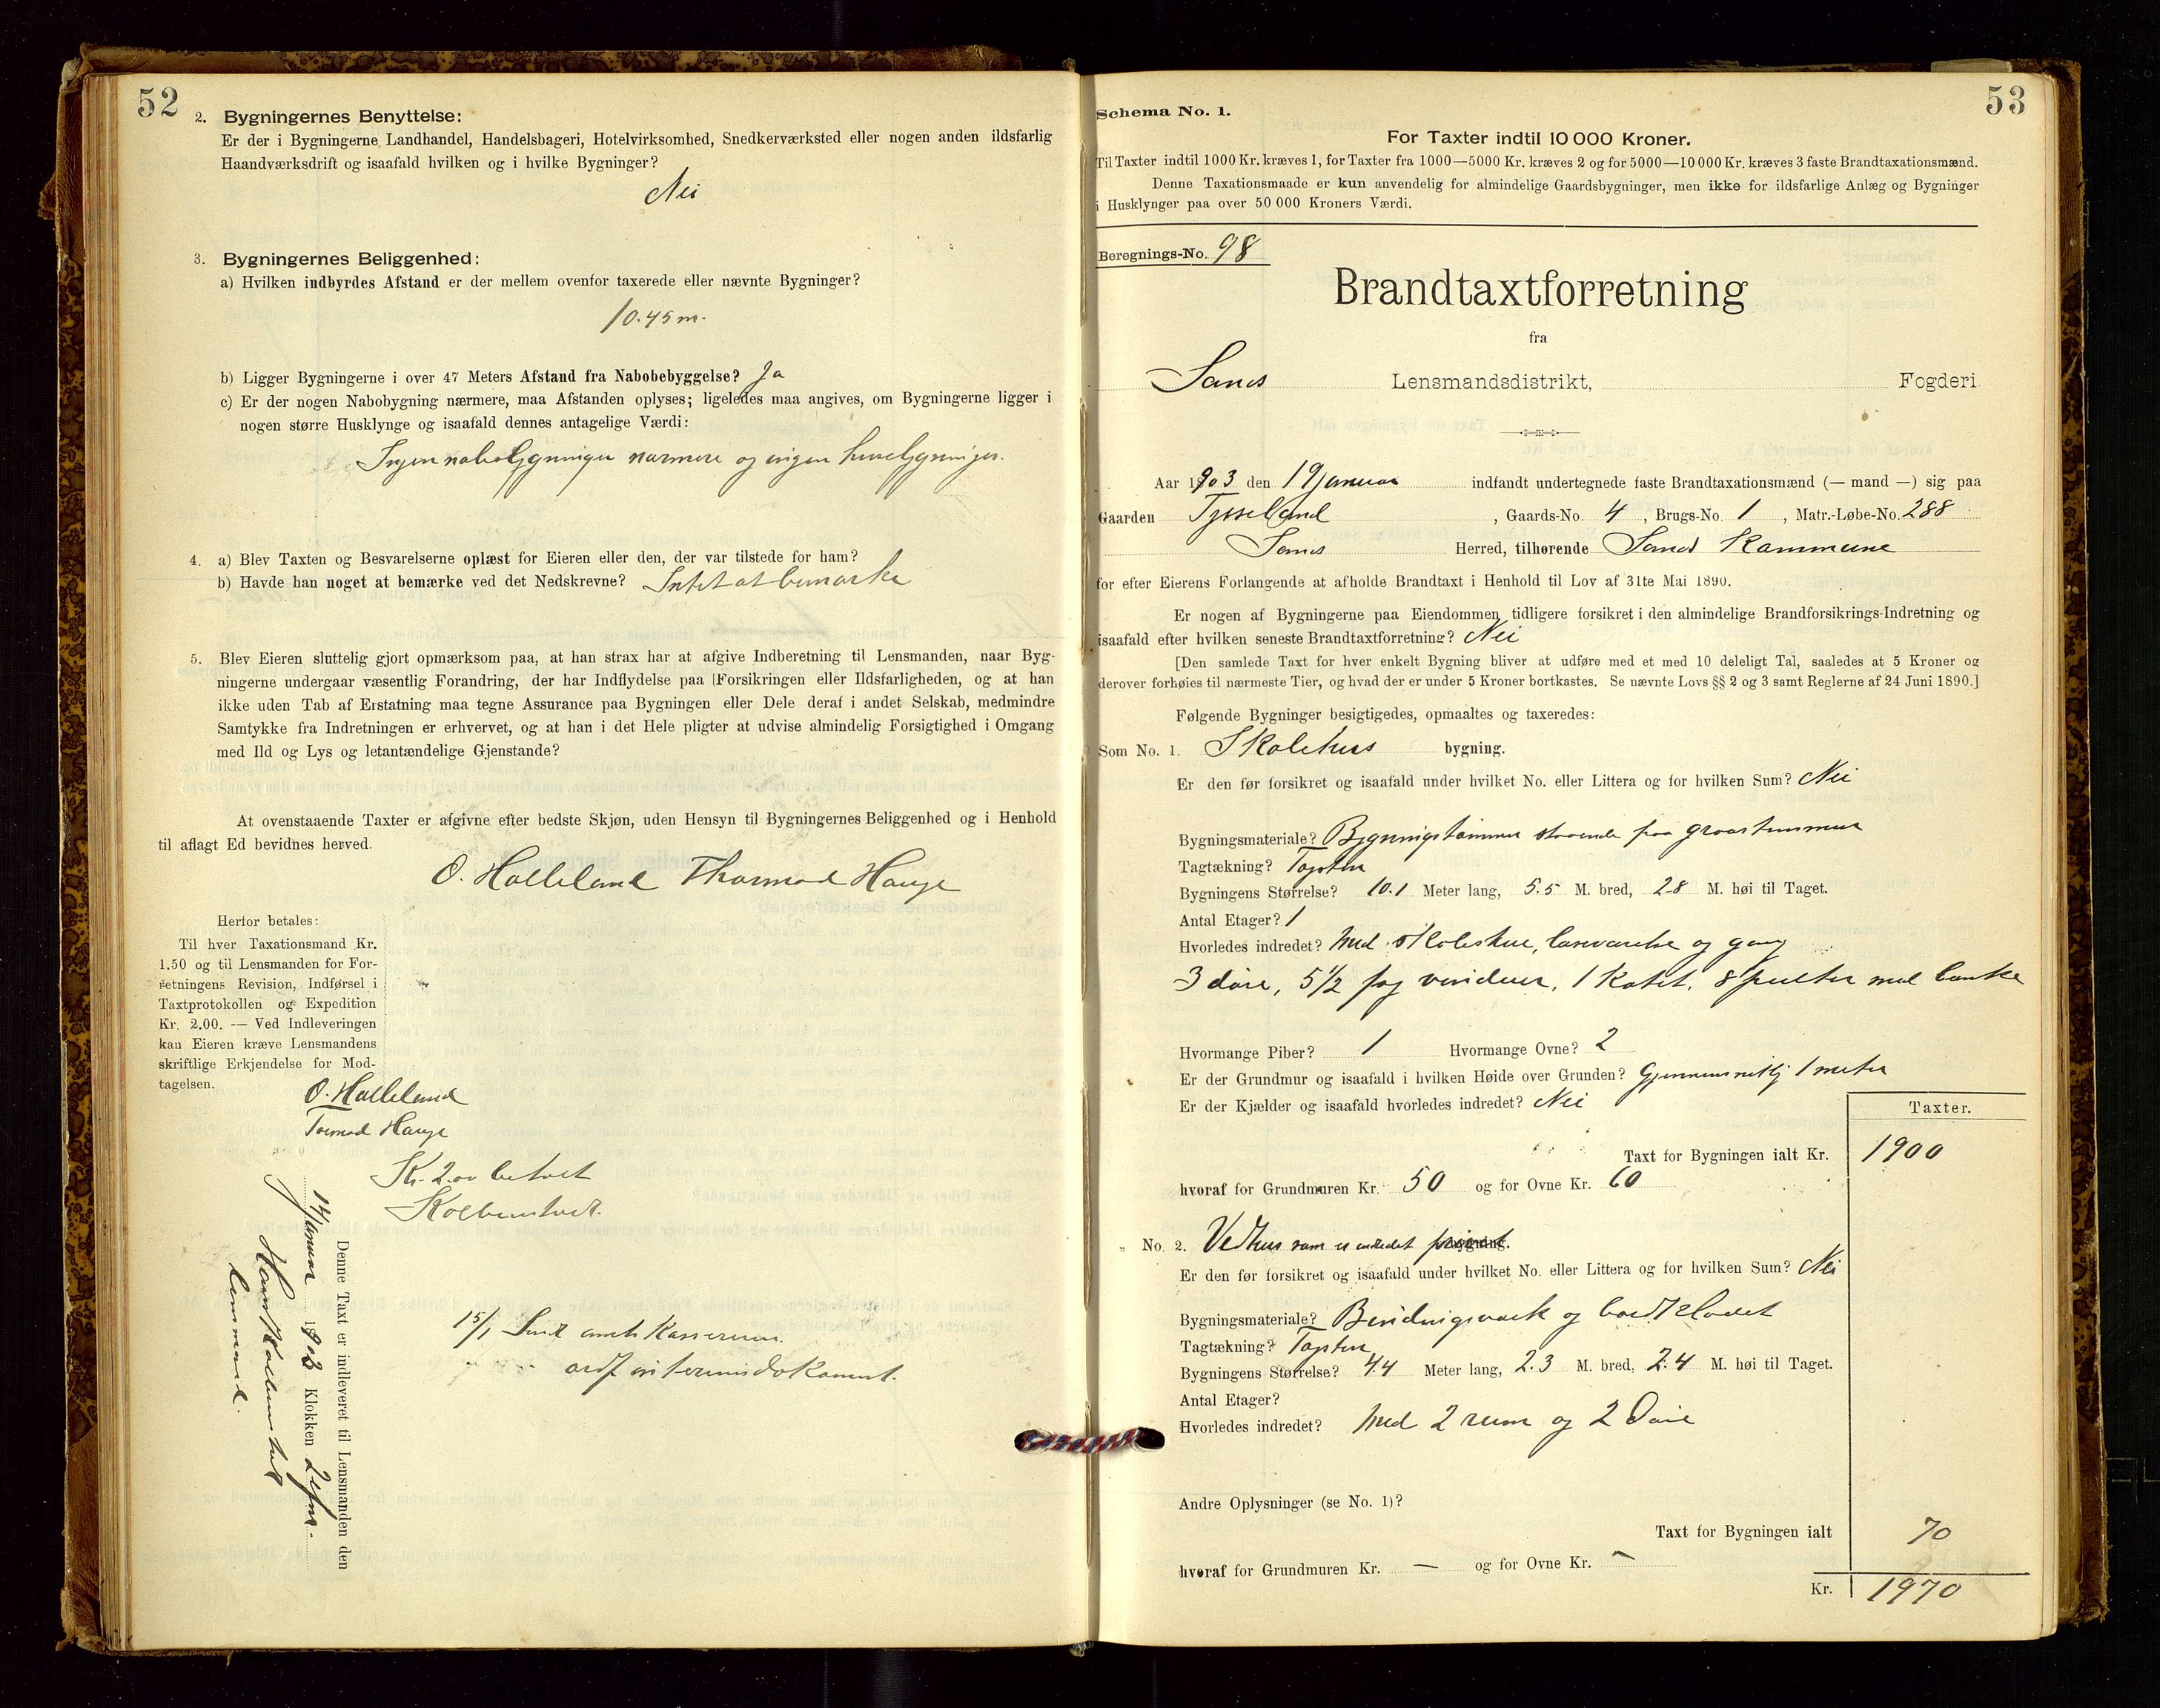 52
2. Bygningernes Benyttelse:
Er der i Bygningerne Landhandel, Handelsbageri, Hotelvirksomhed, Snedkerværksted eller nogen anden ildsfarlig
Haandværksdrift og isaafald hvilken og i hvilke Bygninger?
Nei
3. Bygningernes Beliggenhed:
a) Hvilken indbyrdes Afstand er der mellem ovenfor taxerede eller nævnte Bygninger?
10.45 m.
b) Ligger Bygningerne i over 47 Meters Afstand fra Nabobebyggelse? Ja
c) Er der nogen Nabobygning nærmere, maa Afstanden oplyses; ligeledes maa angives, om Bygningerne ligger i
nogen større Husklynge og isaafald dennes antagelige Værdi:
Ingen nabobygninger nærmere og ingen
4. a) Blev Taxten og Besvarelserne oplæst for Eieren eller den, der var tilstede for ham?
b) Havde han noget at bemærke ved det Nedskrevne? Intet at bemærke
5. Blev Eieren sluttelig gjort opmærksom paa, at han strax har at afgive Indberetning til Lensmanden, naar Byg-
ningerne undergaar væsentlig Forandring, der har Indflydelse paa Forsikringen eller Ildsfarligheden, og at han
ikke uden Tab af Erstatning maa tegne Assurance paa Bygningen eller Dele deraf i andet Selskab, medmindre
Samtykke fra Indretningen er erhvervet, og at han i det Hele pligter at udvise almindelig Forsigtighed i Omgang
med Ild og Lys og letantændelige Gjenstande?
At ovenstaaende Taxter er afgivne efter bedste Skjøn, uden Hensyn til Bygningernes Beliggenhed og i Henhold
til aflagt Ed bevidnes herved.
O. Halleland Thormod Hauge
Herfor betales:
Til hver Taxationsmand Kr.
1.50 og til Lensmanden for For-
retningens Revision, Indførsel i
Taxtprotokollen og Expedition
Kr. 2.00. — Ved Indleveringen
kan Eieren kræve Lensmandens
skriftlige Erkjendelse for Mod-
tagelsen.
O. Halleland
Tormod Hauge
Kr. 2.00 betalt
Kolbenstvedt.
Denne Taxt er indleveret til Lensmanden den
14 januar 1903 Klokken 2
Hans Kolbenstvedt
lensmand.
15/1 Sendt amtskassereren
interimsdokument.
53
Schema No. 1.
For Taxter indtil 10 000 Kroner.
Til Taxter indtil 1000 Kr. kræves 1, for Taxter fra 1000—5000 Kr. kræves 2 og for 5000—10 000 Kr. kræves 3 faste Brandtaxationsmænd.
Denne Taxationsmaade er kun anvendelig for almindelige Gaardsbygninger, men ikke for ildsfarlige Anlæg og Bygninger
i Husklynger paa over 50 000 Kroners Værdi.
Beregnings-No. 98
Brandtaxtforretning
fra
Sand Lensmandsdistrikt, Fogderi
Aar 1903 den 1 januar indfandt undertegnede faste Brandtaxationsmænd (— mand —) sig paa
Gaarden Tysseland, Gaards-No. 4, Brugs-No. 1, Matr.-Løbe-No. 288
Sand Herred, tilhørende Sand Kommune
for efter Eierens Forlangende at afholde Brandtaxt i Henhold til Lov af 31te Mai 1890.
Er nogen af Bygningerne paa Eiendommen tidligere forsikret i den almindelige Brandforsikrings-Indretning og
isaafald efter hvilken seneste Brandtaxtforretning? Nei
[Den samlede Taxt for hver enkelt Bygning bliver at udføre med et med 10 deleligt Tal, saaledes at 5 Kroner og
derover forhøies til nærmeste Tier, og hvad der er under 5 Kroner bortkastes. Se nævnte Lovs §§ 2 og 3 samt Reglerne af 24 Juni 1890.]
Følgende Bygninger besigtigedes, opmaaltes og taxeredes:
Som No. 1. Skolehus bygning.
Er den før forsikret og isaafald under hvilket No. eller Littera og for hvilken Sum? Nei
Bygningsmateriale? Bygningstømmer staaende paa graastensmur
Tagtækning? Tagsten
Bygningens Størrelse? 10.1 Meter lang, 5.5 M. bred, 2.8 M. høi til Taget.
Antal Etager? 1
Hvorledes indredet? Med skolestue, læreværelse og gang
3 døre, 5 1/2 fag vinduer, 1 Katet, 8 pulter med bænke
Hvormange Piber? 1 Hvormange Ovne? 2
Er der Grundmur og isaafald i hvilken Høide over Grunden? Gjennemsnitlig 1 meter
Er der Kjælder og isaafald hvorledes indredet? Nei
Taxter.
Taxt for Bygningen ialt Kr. 1900
hvoraf for Grundmuren Kr. 50 og for Ovne Kr. 60
" No. 2. Vedhus som er indredet privat. bygning.
Er den før forsikret og isaafald under hvilket No. eller Littera og for hvilken Sum? Nei
Bygningsmateriale? Bindingsværk og bordklædt
Tagtækning? Tagsten
Bygningens Størrelse? 4.4 Meter lang, 2.3 M. bred, 2.4 M. høi til Taget.
Antal Etager?
Hvorledes indredet? Med 2 rum og 2 Døre
Andre Oplysninger (se No. 1)?
Taxt for Bygningen ialt 70
hvoraf for Grundmuren Kr. — og for Ovne Kr. —
Kr. 1970